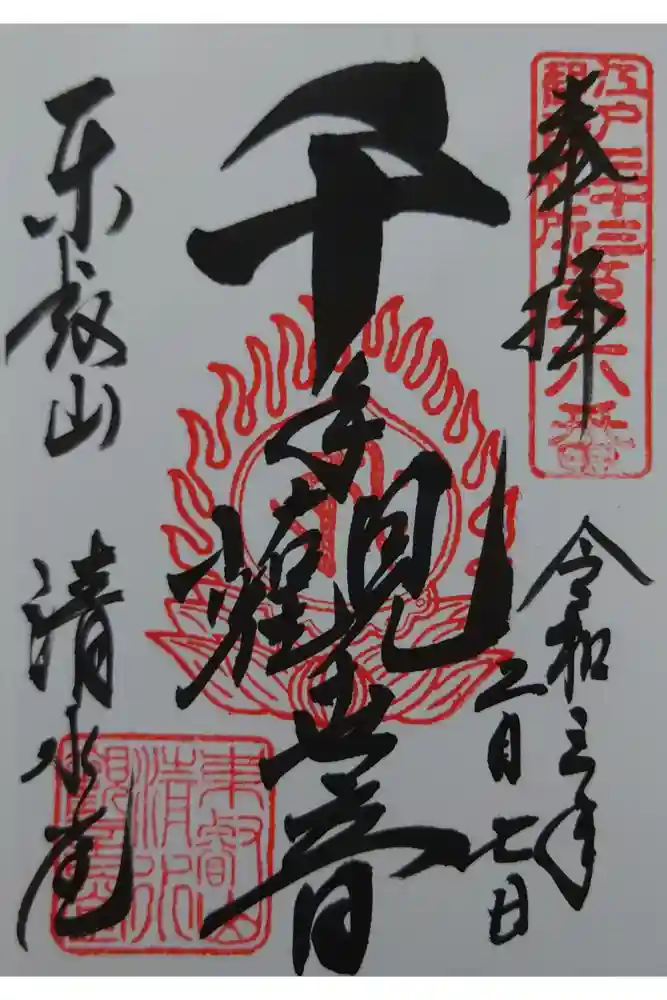 奉拝
江戸三十三番第六番
令和三年
二月七日
千手観世音
東叡山
清水堂
東叡山
清水
観音堂